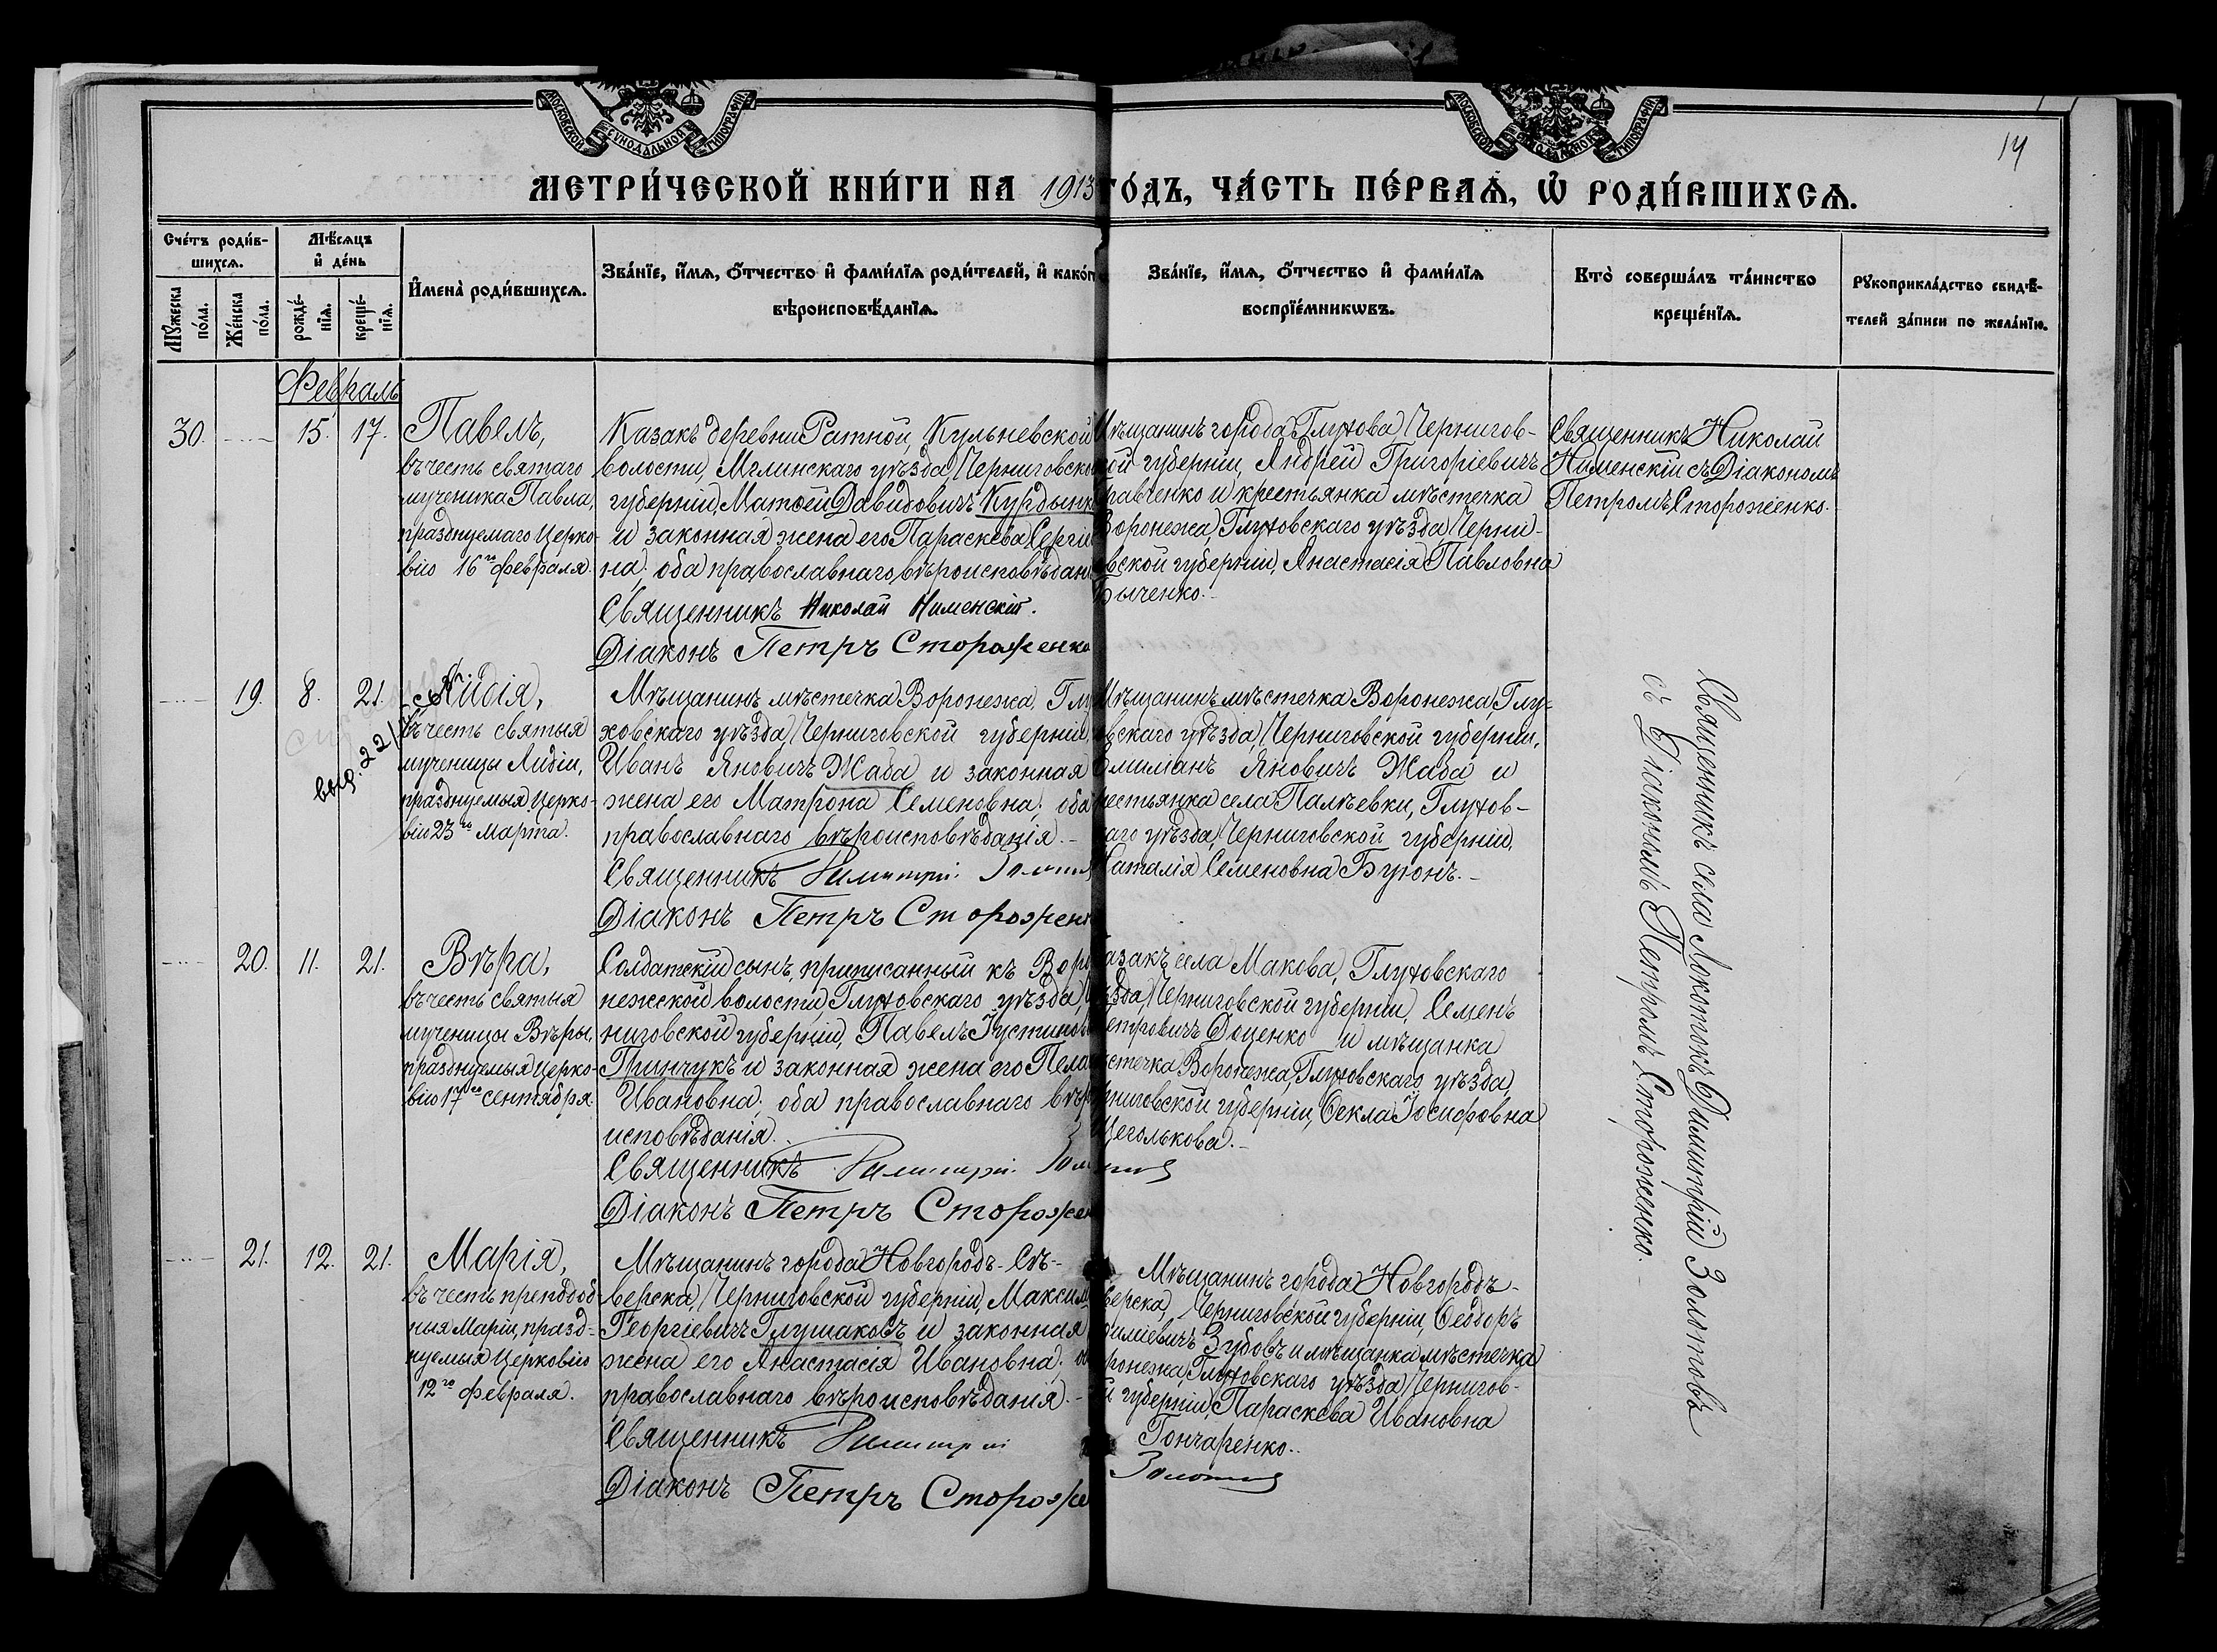 МОСКОВСКОЙ СѴНОДАЛЬНОЙ ТИПОГРАФІИ
МОСКОВСКОЙ СѴНОДАЛЬНОЙ ТИПОГРАФІИ
14
МЕТРИ́ЧЕСКОЙ КНИ́ГИ НА 1913 ГО́ДЪ, ЧА́СТЬ ПЕ́РВАѦ, Ѡ҆ РОДИ́ВШИХСѦ.
Сче́тъ роди́в-
шихсѧ.
Мꙋ́жеска
по́ла.
Же́нска
по́ла.
Мѣ́сѧцъ
и҆ де́нь
рожде́-
нїѧ.
креще́-
нїѧ.
И҆мена̀ роди́вшихсѧ.
Зва́нїе, и҆́мѧ, ѻ҆́тчество и҆ фами́лїѧ роди́телей, и҆ како́г
вѣроисповѣ́данїѧ.
Зва́нїе, и҆́мѧ, ѻ҆́тчество и҆ фами́лїѧ
воспрїе́мникѡвъ.
Кто̀ соверша́лъ та́инство
креще́нїѧ.
Рꙋкоприкла́дство свидѣ́-
телей за́писи по жела́нїю.
Февраль
30. 15. 17.
Павелъ,
въ честь святаго
мученика Павла,
празднуемаго Церко-
вію 16го февраля.
Казакъ деревни Ратной, Кульневской
волости, Мглинскаго уѣзда, Черниговско
губерніи, Матѳей Давидовичъ Курдынк
и законная жена его Параскева Сергіе
на; оба православнаго вѣроисповѣдан
Священникъ Николай Нименскій.
Діаконъ Петръ Стороженко
Мѣщанинъ города Глухова, Чернигов-
кой губерніи, Андрей Григоріевичъ
равченко и крестьянка мѣстечка
Воронежа, Глуховскаго уѣзда, Черни-
вской губерніи, Анастасія Павловна
ыченко.
Священникъ Николай
Нименскій съ Діакономъ
Петромъ Стороженко.
19. 8. 21.
Лидія,
въ честь святыя
мученицы Лидіи,
празднуемыя Церко-
вію 23го марта.
выд. 22/
Мѣщанинъ мѣстечка Воронежа, Глу
ховскаго уѣзда, Черниговской губерніи,
Иванъ Яновичъ Жаба и законная
жена его Матрона Семеновна; оба
православнаго вѣроисповѣданія.
Священникъ Димитрій
Діаконъ Петръ Стороженк
Мѣщанинъ мѣстечка Воронежа, Глу-
овскаго уѣзда, Черниговской губерніи,
милианъ Яновичъ Жаба и
рестьянка села Палѣевки, Глухов-
каго уѣзда, Черниговской губерніи,
Наталія Семеновна Бугонъ.
Священникъ села Локотокъ Димитрій Золотовъ
съ Діакономъ Петромъ Стороженко.
20. 11. 21.
Вѣра,
въ честь святыя
мученицы Вѣры,
празднуемыя Церко-
вію 17го сентября.
Солдатскій сынъ, приписанный къ Воро
нежской волости, Глуховскаго уѣзда,
ниговской губерніи, Павелъ Іустинов
Гринчукъ и законная жена его Пела
Ивановна; оба православнаго вѣр
исповѣданія.
Священникъ Димитрій Золотовъ
Діаконъ Петръ Сторожен
азакъ села Макова, Глуховскаго
ѣзда, Черниговской губерніи, Семенъ
етровичъ Доценко и мѣщанка
стечка Воронежа, Глуховскаго уѣзда
рниговской губерніи, Ѳекла Іосифовна
Щеголькова.
21. 12. 21.
Марія,
въ честь преподоб-
ныя Маріи, празд-
нуемыя Церковію
12го февраля.
Мѣщанинъ города Новгородъ-Сѣ-
верска, Черниговской губерніи, Максим
Георгіевичъ Глушаковъ и законная
жена его Анастасія Ивановна; о
православнаго вѣроисповѣданія.
Священникъ Димитрій
Діаконъ Петръ Стороже
Мѣщанинъ города Новгородъ-
верска, Черниговской губерніи, Ѳеодоръ
иміевичъ Зубовъ и мѣщанка мѣстечка
ронежа, Глуховскаго уѣзда, Чернигов-
й губерніи, Параскева Ивановна
Гончаренко.
Золотовъ